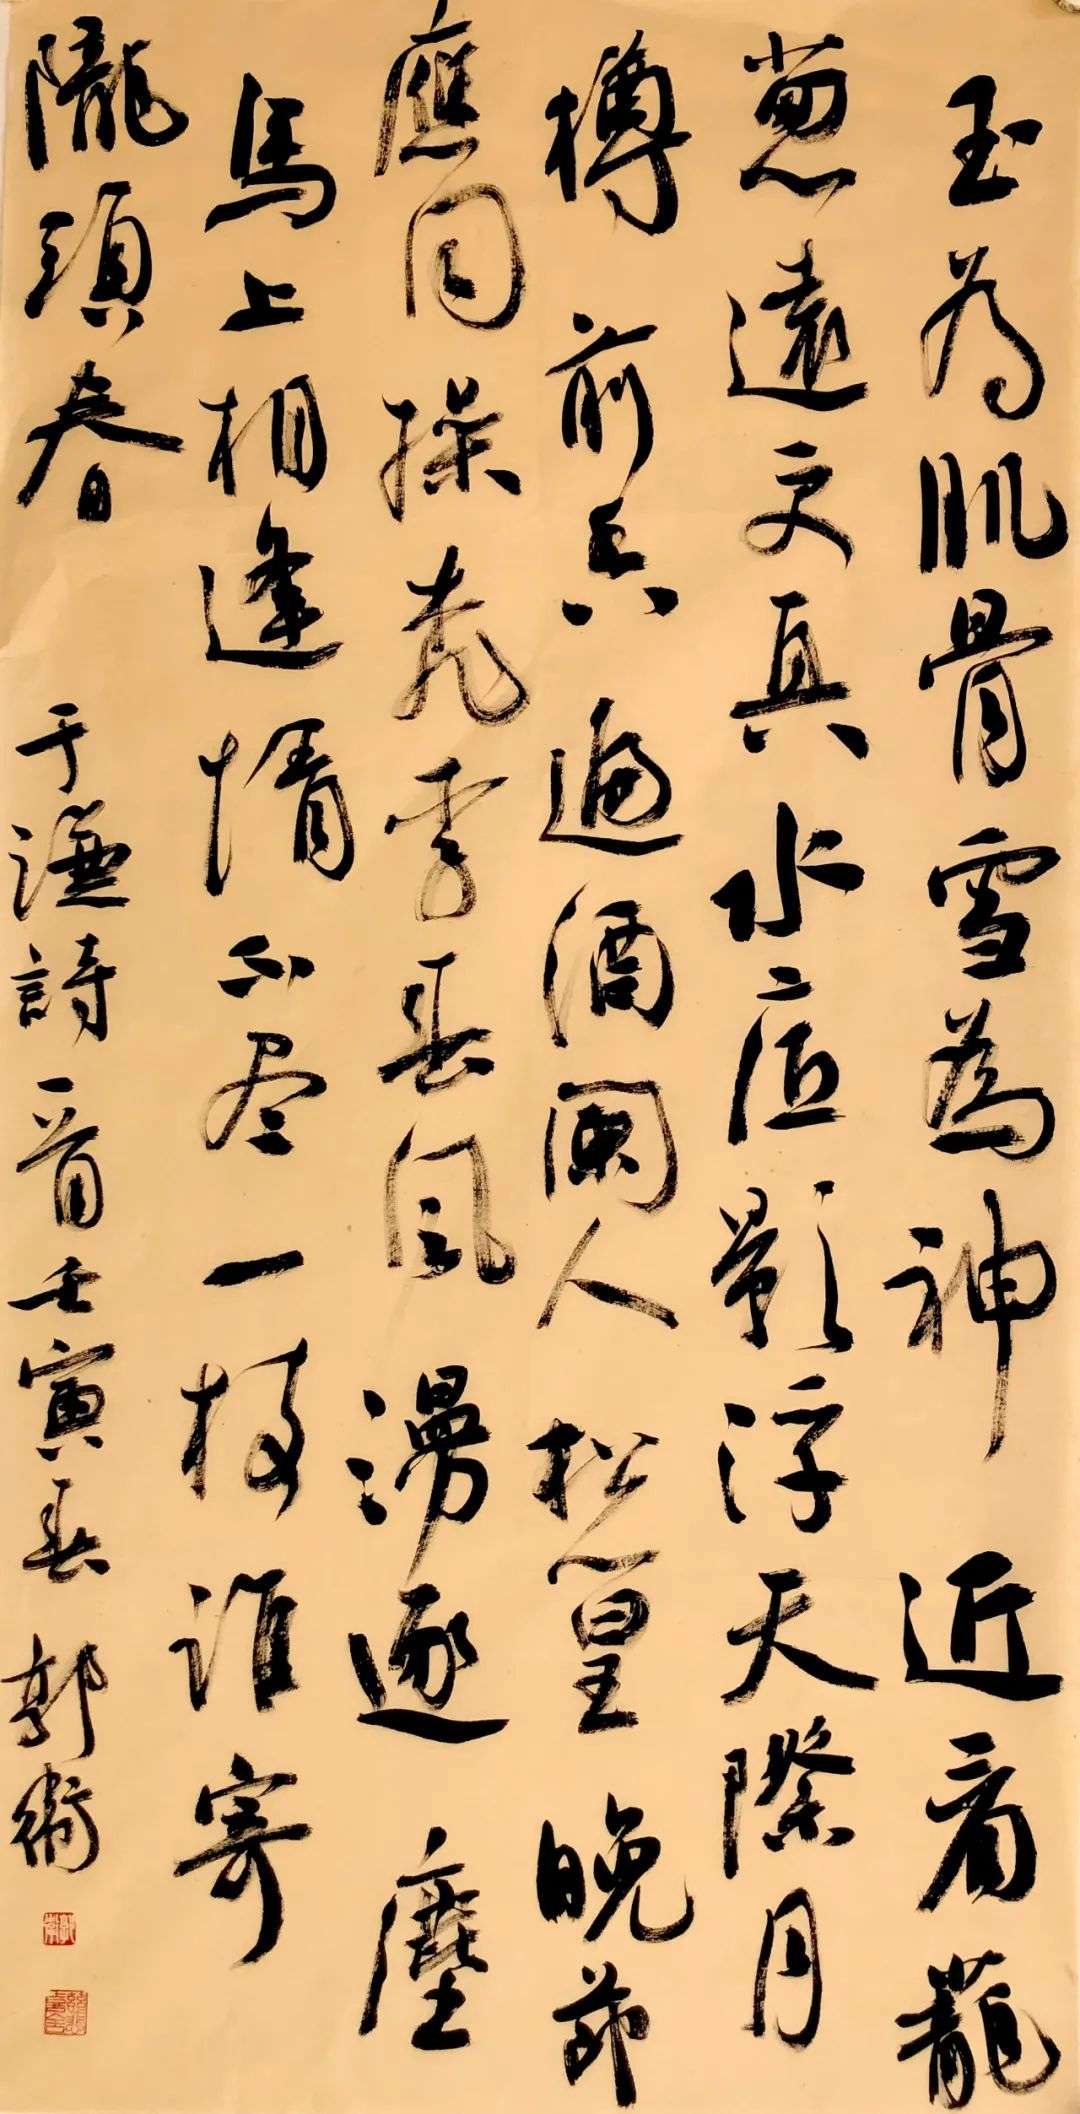 玉为肌骨雪為神近看蘢
葱遠更真水底影浮天際月
樽前香逼酒闌人松篁晚節
應同操桃李春風漫逐塵
馬上相逢情不尽一枝誰寄
隴頭春
于謙詩一首壬寅春郭衛